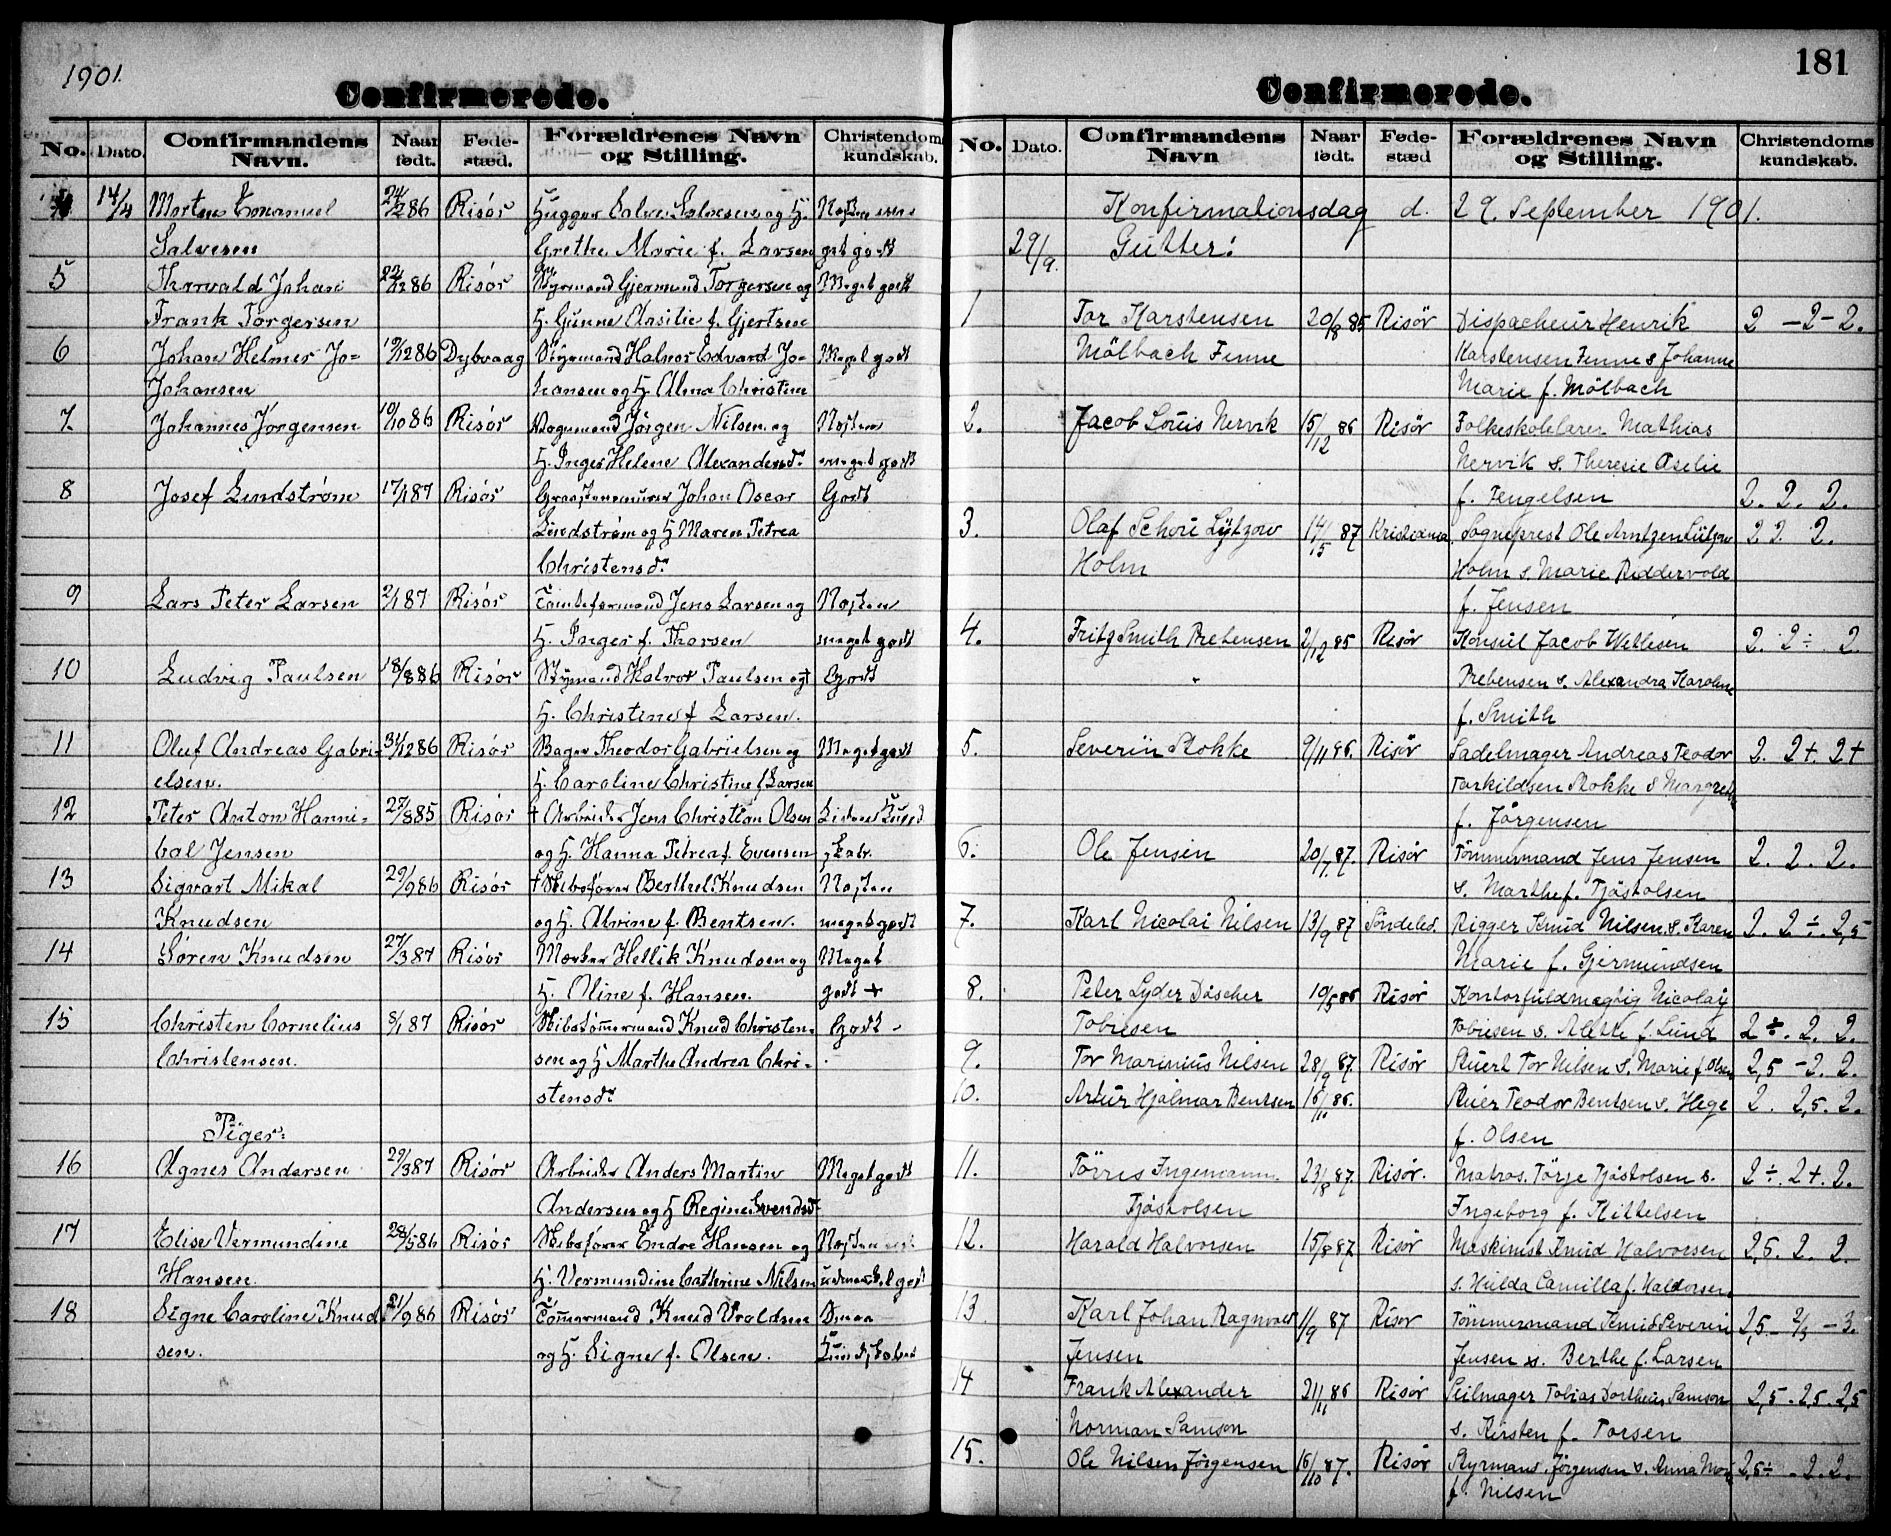 1901.
Confirmerede.
No. Dato. Confirmandens Navn. Naar født. Fødestæd. Forældrenes Navn og Stilling. Christendomskundskab.
4 14/4 Morten Emanuel 24/2 86 Risör Hugger Salve Salvesen og H. Næsten
Salvesen Grethe Marie f. Larsen meget godt
5 Thorvald Johan 22/12 86 Risör Styrmand Gjermund Torgersen og Meget godt
Frank Torgersen H. Gunne Aasilie f. Gjertsen
6 Johan Helmer Jo- 19/12 86 Dybvaag Styrmand Halvor Edvard Jo- Meget godt
Johansen hansen og H. Alma Christine
7. Johannes Jörgensen 10/10 86 Risör Jörgen Nilsen og Næsten
H. Inger Helene Alexandersdr meget godt
8 Josef Lindström 17/1 87 Risör Graastensmurer Johan Oscar Godt
Lindström og H Maren Petrea
Christensdr
9 Lars Peter Larsen 2/1 87 Risör Tomteformand Jens Larsen og Næsten
H. Inger f. Thorsen meget godt
10 Ludvig Paulsen 18/8 86 Risör Styrmand Halvor Paulsen og Godt
H. Christine f Larsen.
11 Oluf Andreas Gabri- 31/12 86 Risör Bager Theodor Gabrielsen og Meget godt
elsen. H. Caroline Christine f Larsen
12 Peter Anton Hanni- 27/8 85 Risör † Arbeider Jens Christian Olsen Liden Kund
bal Jensen og H. Hanna Petrea f. Evensen skab.
13 Sigvart Mikal 29/9 86 Risör † Skibsförer Berthel Knudsen Næsten
Knudsen og H. Alvine f. Bentsen. meget godt
14 Sören Knudsen 27/3 87 Risör Mærker Hellik Knudsen og Meget
H. Oline f. Hansen. godt +
15 Christen Cornelius 8/1 87 Risör Skibstömmermand Knud Christen- Godt -
Christensen. sen og H Marthe Andrea Chri-
stensdr
Piger:
16 Agnes Andersen 29/3 87 Risör Arbeider Anders Martin Meget godt
Andersen og H Regine Svendsdr
17 Elise Vermundine 28/5 86 Risör Skibsförer Endre Hansen og Næsten
Hansen. H. Vermundine Cathrine Nilsen udmærket godt
18 Signe Caroline Knud 21/9 86 Risör Tömmermand Knud Vroldsen Smaa
sen. og H. Signe f. Olsen. Kundskaber
181
Confirmerede.
No. Dato. Confirmandens Navn Naar født. Fødestæd Forældrenes Navn og Stilling. Christendomskundskab.
Konfirmationsdag d. 29. September 1901.
29/9. Gutter:
1 Tor Karstensen 20/8 85 Risör Dispacheur Henrik 2 - 2 - 2.
Mölbach Finne Karstensen Finne & Johanne
Marie f. Mölbach
2. Jacob Louis Nervik 15/12 86 Risör Folkeskolelærer Mathias
Nervik & Theresie Aselie
f. Tengelsen 2. 2. 2.
3. Olaf Schou Lytzow 14/5 87 Kristiania. Sogneprest Ole Arntzen Lützow 2 2 2.
Holm Holm & Marie Riddervold
f. Jensen
4. Fritz Smith Prebensen 2/12 85 Risör Konsul Jacob Wetlesen 2. 2 ÷. 2.
Prebensen & Alexandra Karoline
f. Smith
5. Severin Stokke 9/11 86. Risör Sadelmager Andreas Teodor 2. 2+. 2+
Torkildsen Stokke & Margrethe
f. Jörgensen
6. Ole Jensen 20/7 87. Risör Tömmermand Jens Jensen 2. 2. 2.
& Marthe f. Tjöstolsen
7. Karl Nicolai Nilsen 13/9 87 Söndeled. Rigger Knud Nilsen & Karen 2. 2 ÷. 2,5
Marie f. Gjermundsen
8. Peter Lyder Döscher 10/5 86 Risör Kontorfuldmægtig Nicolay
Tobiesen Tobiesen & Alette f. Lund 2 ÷. 2. 2.
9. Tor Marinius Nilsen 28/9 87. Risör Stuert Tor Nilsen & Marie f Olsen 2,5 - 2. 2.
10. Artur Hjalmar Bentsen 16/11 86. Stuer Teodor Bentsen & Hege 2. 2,5. 2.
f. Olsen
11. Törris Ingemann. 23/8 87. Risör. Matros. Törje Tjöstolsen & 2 ÷. 2 +. 2.
Tjöstolsen Ingeborg f. Kittelsen
12. Harald Halvorsen 15/8 87 Risör Maskinist Knud Halvorsen 2,5. 2. 2.
& Hulda Camilla f. Haldorsen.
13 Karl Johan Ragnvald 1/9 87 Risör Tömmermand Knud Severin 2,5 - 2/3 - 3.
Jensen Jensen & Berthe f. Larsen
14 Frank Alexander 21/11 86 Risör Seilmager Tobias Dortheus Samson 2,5. 2,5. 2,5
Norman Samson & Kirsten f. Torsen
15. Ole Nilsen Jörgensen 16/10 87. Risör Styrmand. Jörgensen & Anna 2,5÷ . 2. 2.
f. Nilsen